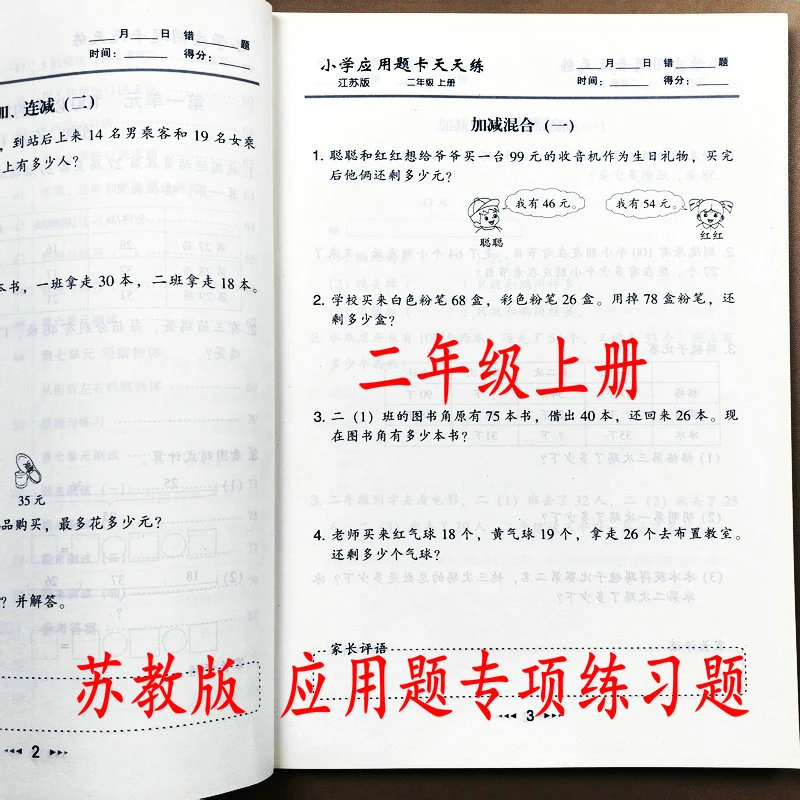 ___月___日 错______题
时间：______ 得分：______
加、连减（二）
，到站后上来 14 名男乘客和 19 名女乘
上有多少人？
本书，一班拿走 30 本，二班拿走 18 本。
35 元
品购买，最多花多少元？
？并解答。
2
小学应用题卡天天练
江苏版 二年级 上册
___月___日 错______题
时间：______ 得分：______
加减混合（一）
1. 聪聪和红红想给爷爷买一台 99 元的收音机作为生日礼物，买完
后他俩还剩多少元？
我有 46 元。
我有 54 元。
聪聪
红红
2. 学校买来白色粉笔 68 盒，彩色粉笔 26 盒。用掉 78 盒粉笔，还
剩多少盒？
二年级上册
3. 二（1）班的图书角原有 75 本书，借出 40 本，还回来 26 本。现
在图书角有多少本书？
4. 老师买来红气球 18 个，黄气球 19 个，拿走 26 个去布置教室。
还剩多少个气球？
家长评语
苏教版 应用题专项练习题
3